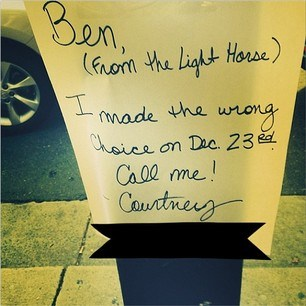 Ben,
(From the Light Horse)
I made the wrong
Choice on Dec. 23rd.
Call me!
Courtney